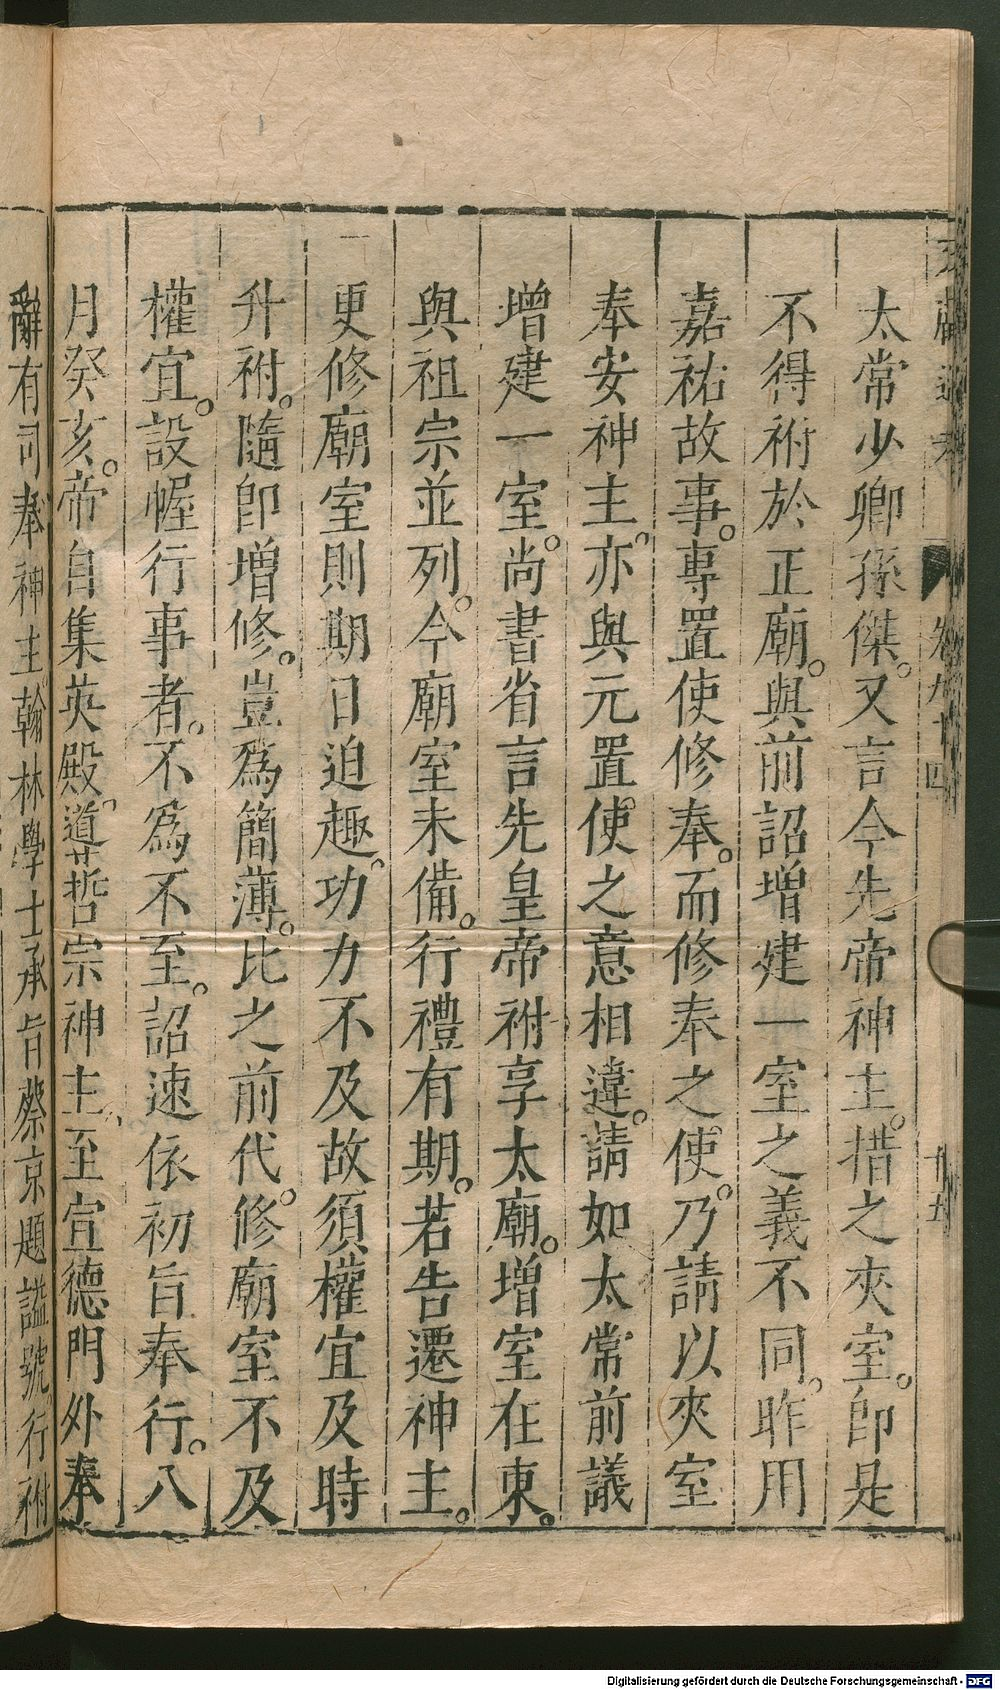 太常少卿孫傑。又言今先帝神主。措之夾室。即是
不得祔於正廟。與前詔增建一室之義不同。昨用
嘉祐故事。專置使修奉。而修奉之使。乃請以夾室
奉安神主。亦與元置使之意相違。請如太常前議
增建一室。尚書省言先皇帝祔享太廟。增室在東。
與祖宗並列。今廟室未備。行禮有期。若告遷神主。
更修廟室則期日迫趣。功力不及故須權宜及時
升祔。隨即增修。豈爲簡薄。比之前代。修廟室不及
權宜。設幄行事者。不爲不至。詔速依初旨奉行。八
月癸亥。帝自集英殿。道哲宗神主至宣德門外奉
辭有司奉神主翰林學士承旨蔡京題謚號行祔
Digitalisierung gefördert durch die Deutsche Forschungsgemeinschaft - DFG